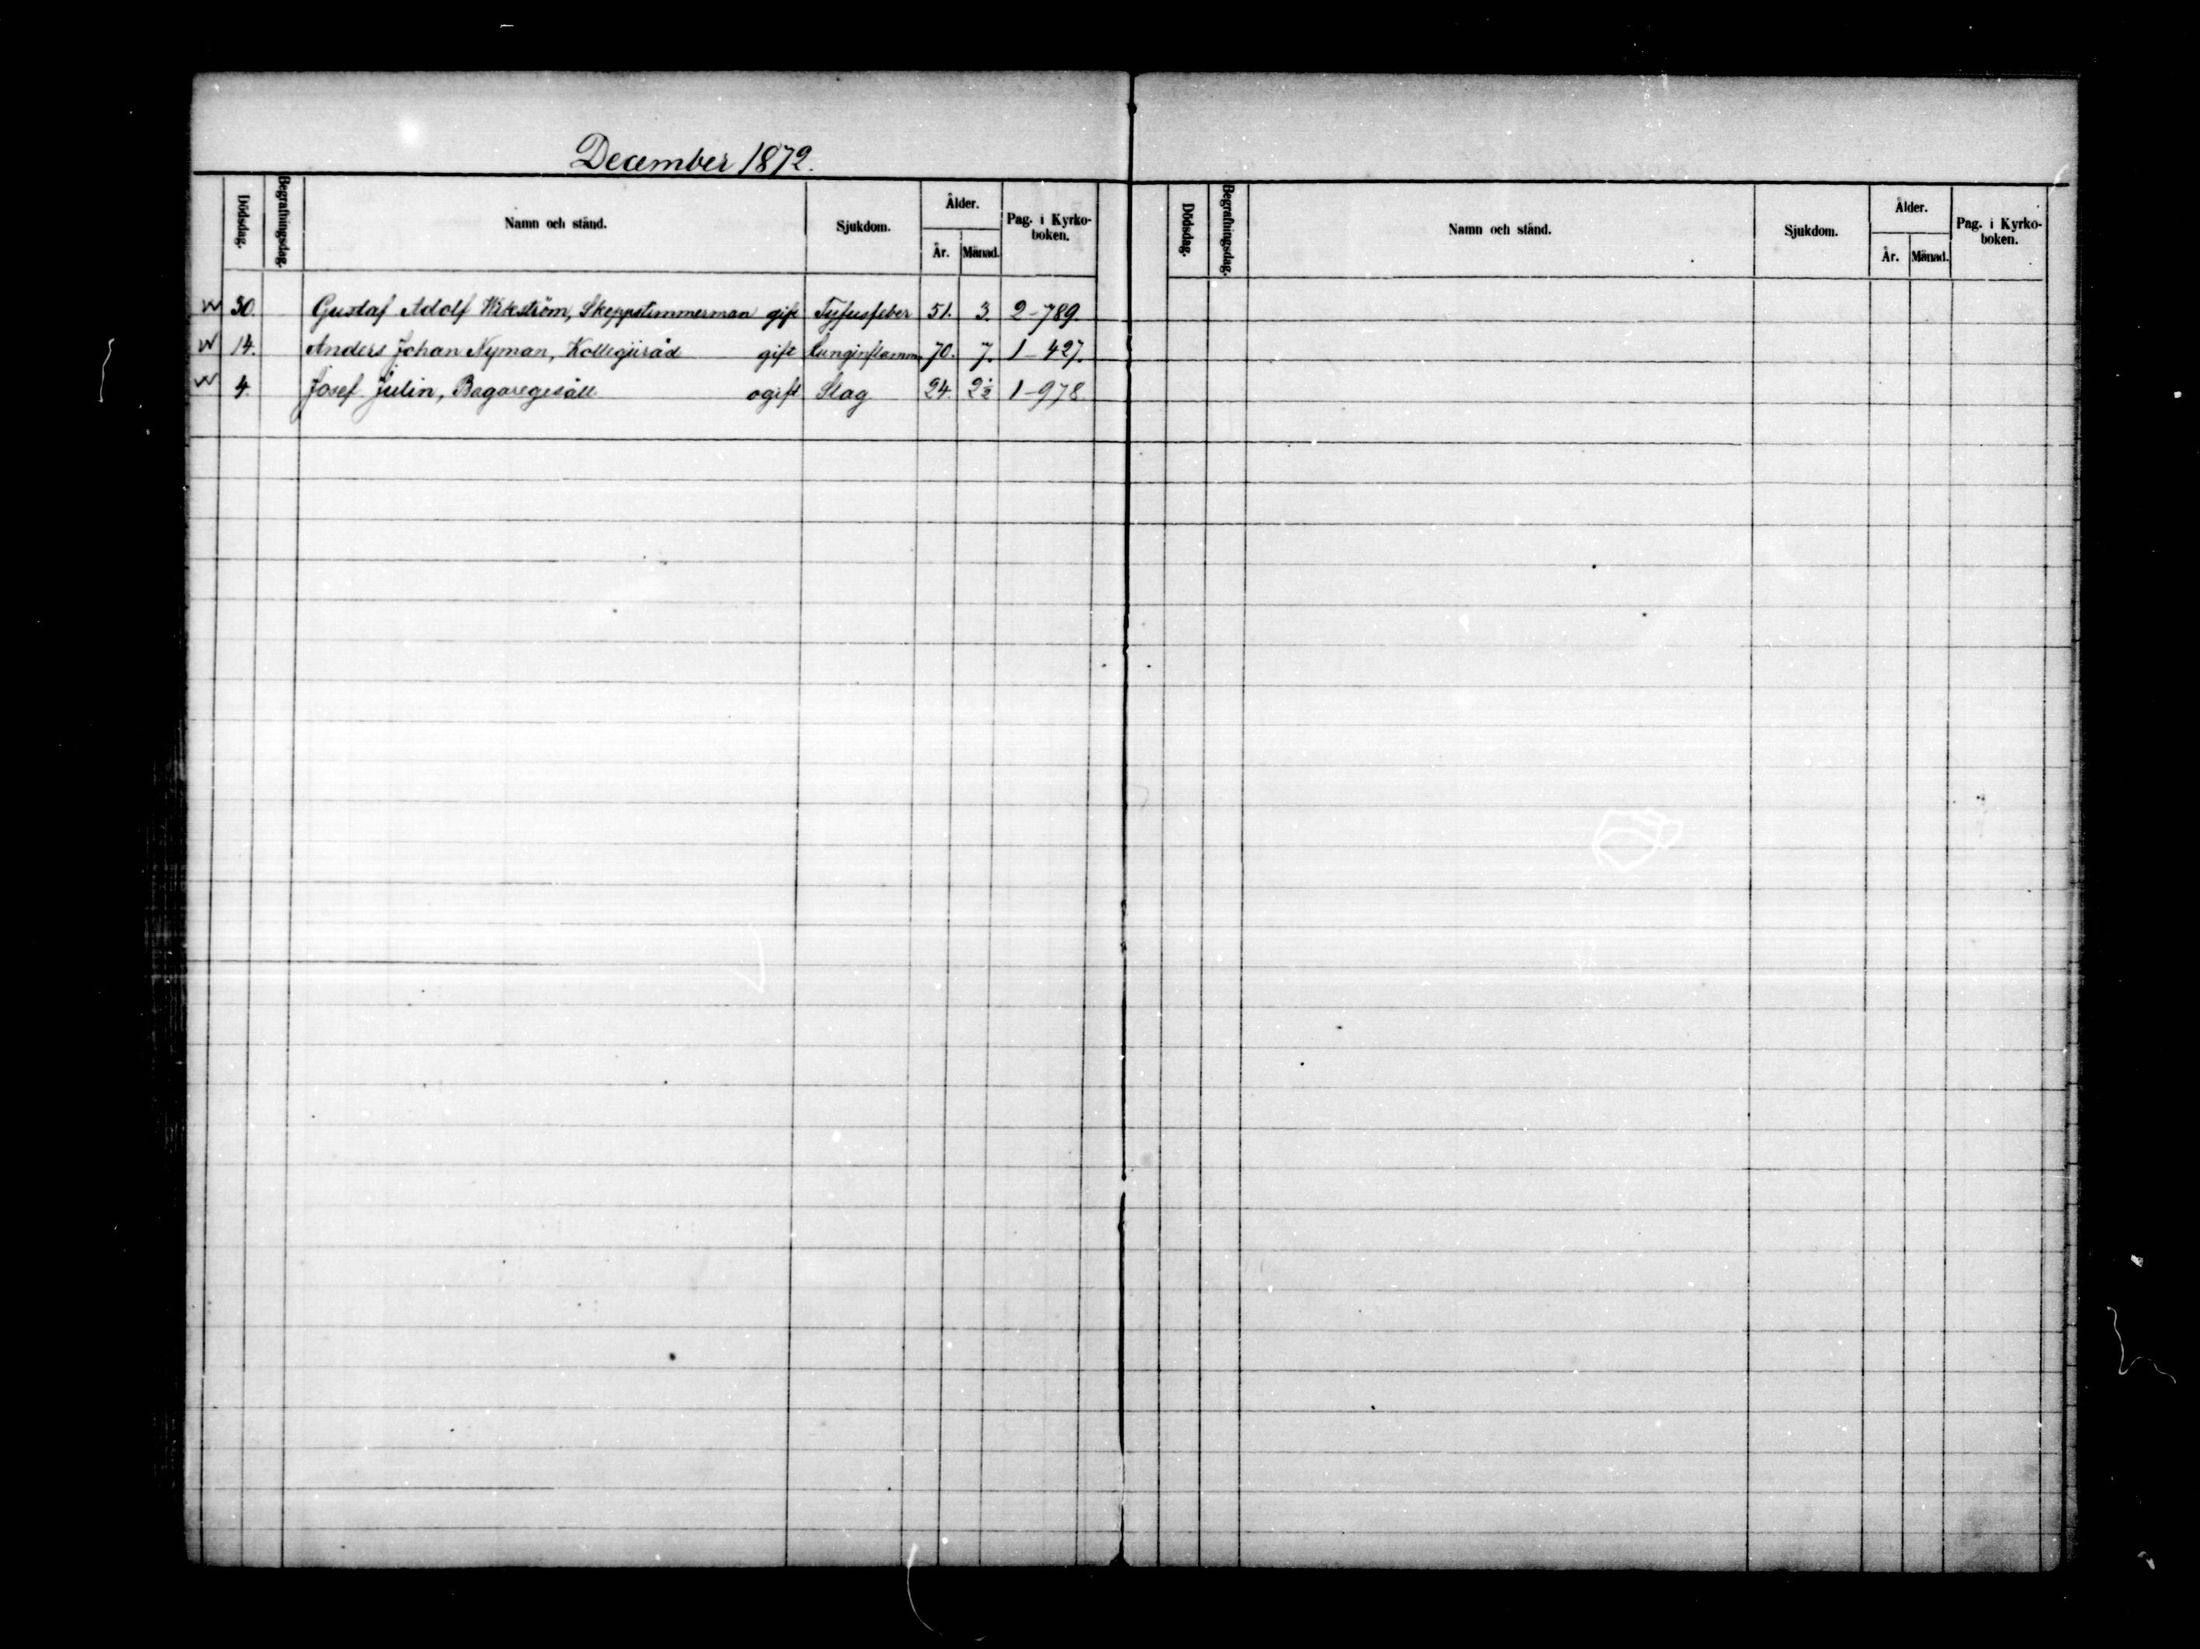 December 1872.
Dödsdag. Begrafningsdag. Namn och stånd. Sjukdom. Ålder. År. Månad. Pag. i Kyrko-boken.
Dödsdag. Begrafningsdag. Namn och stånd. Sjukdom. Ålder. År. Månad. Pag. i Kyrko-boken.
30. Gustaf Adolf Wikström, Skeppstimmerman gift Tyfusfeber 51. 3. 2-789.
14. Anders Johan Nyman, Kollegiiråd gift Lunginflamm. 70. 7. 1-427.
4. Josef Julin, Bagaregesäll ogift Slag 24. 2½ 1-978.